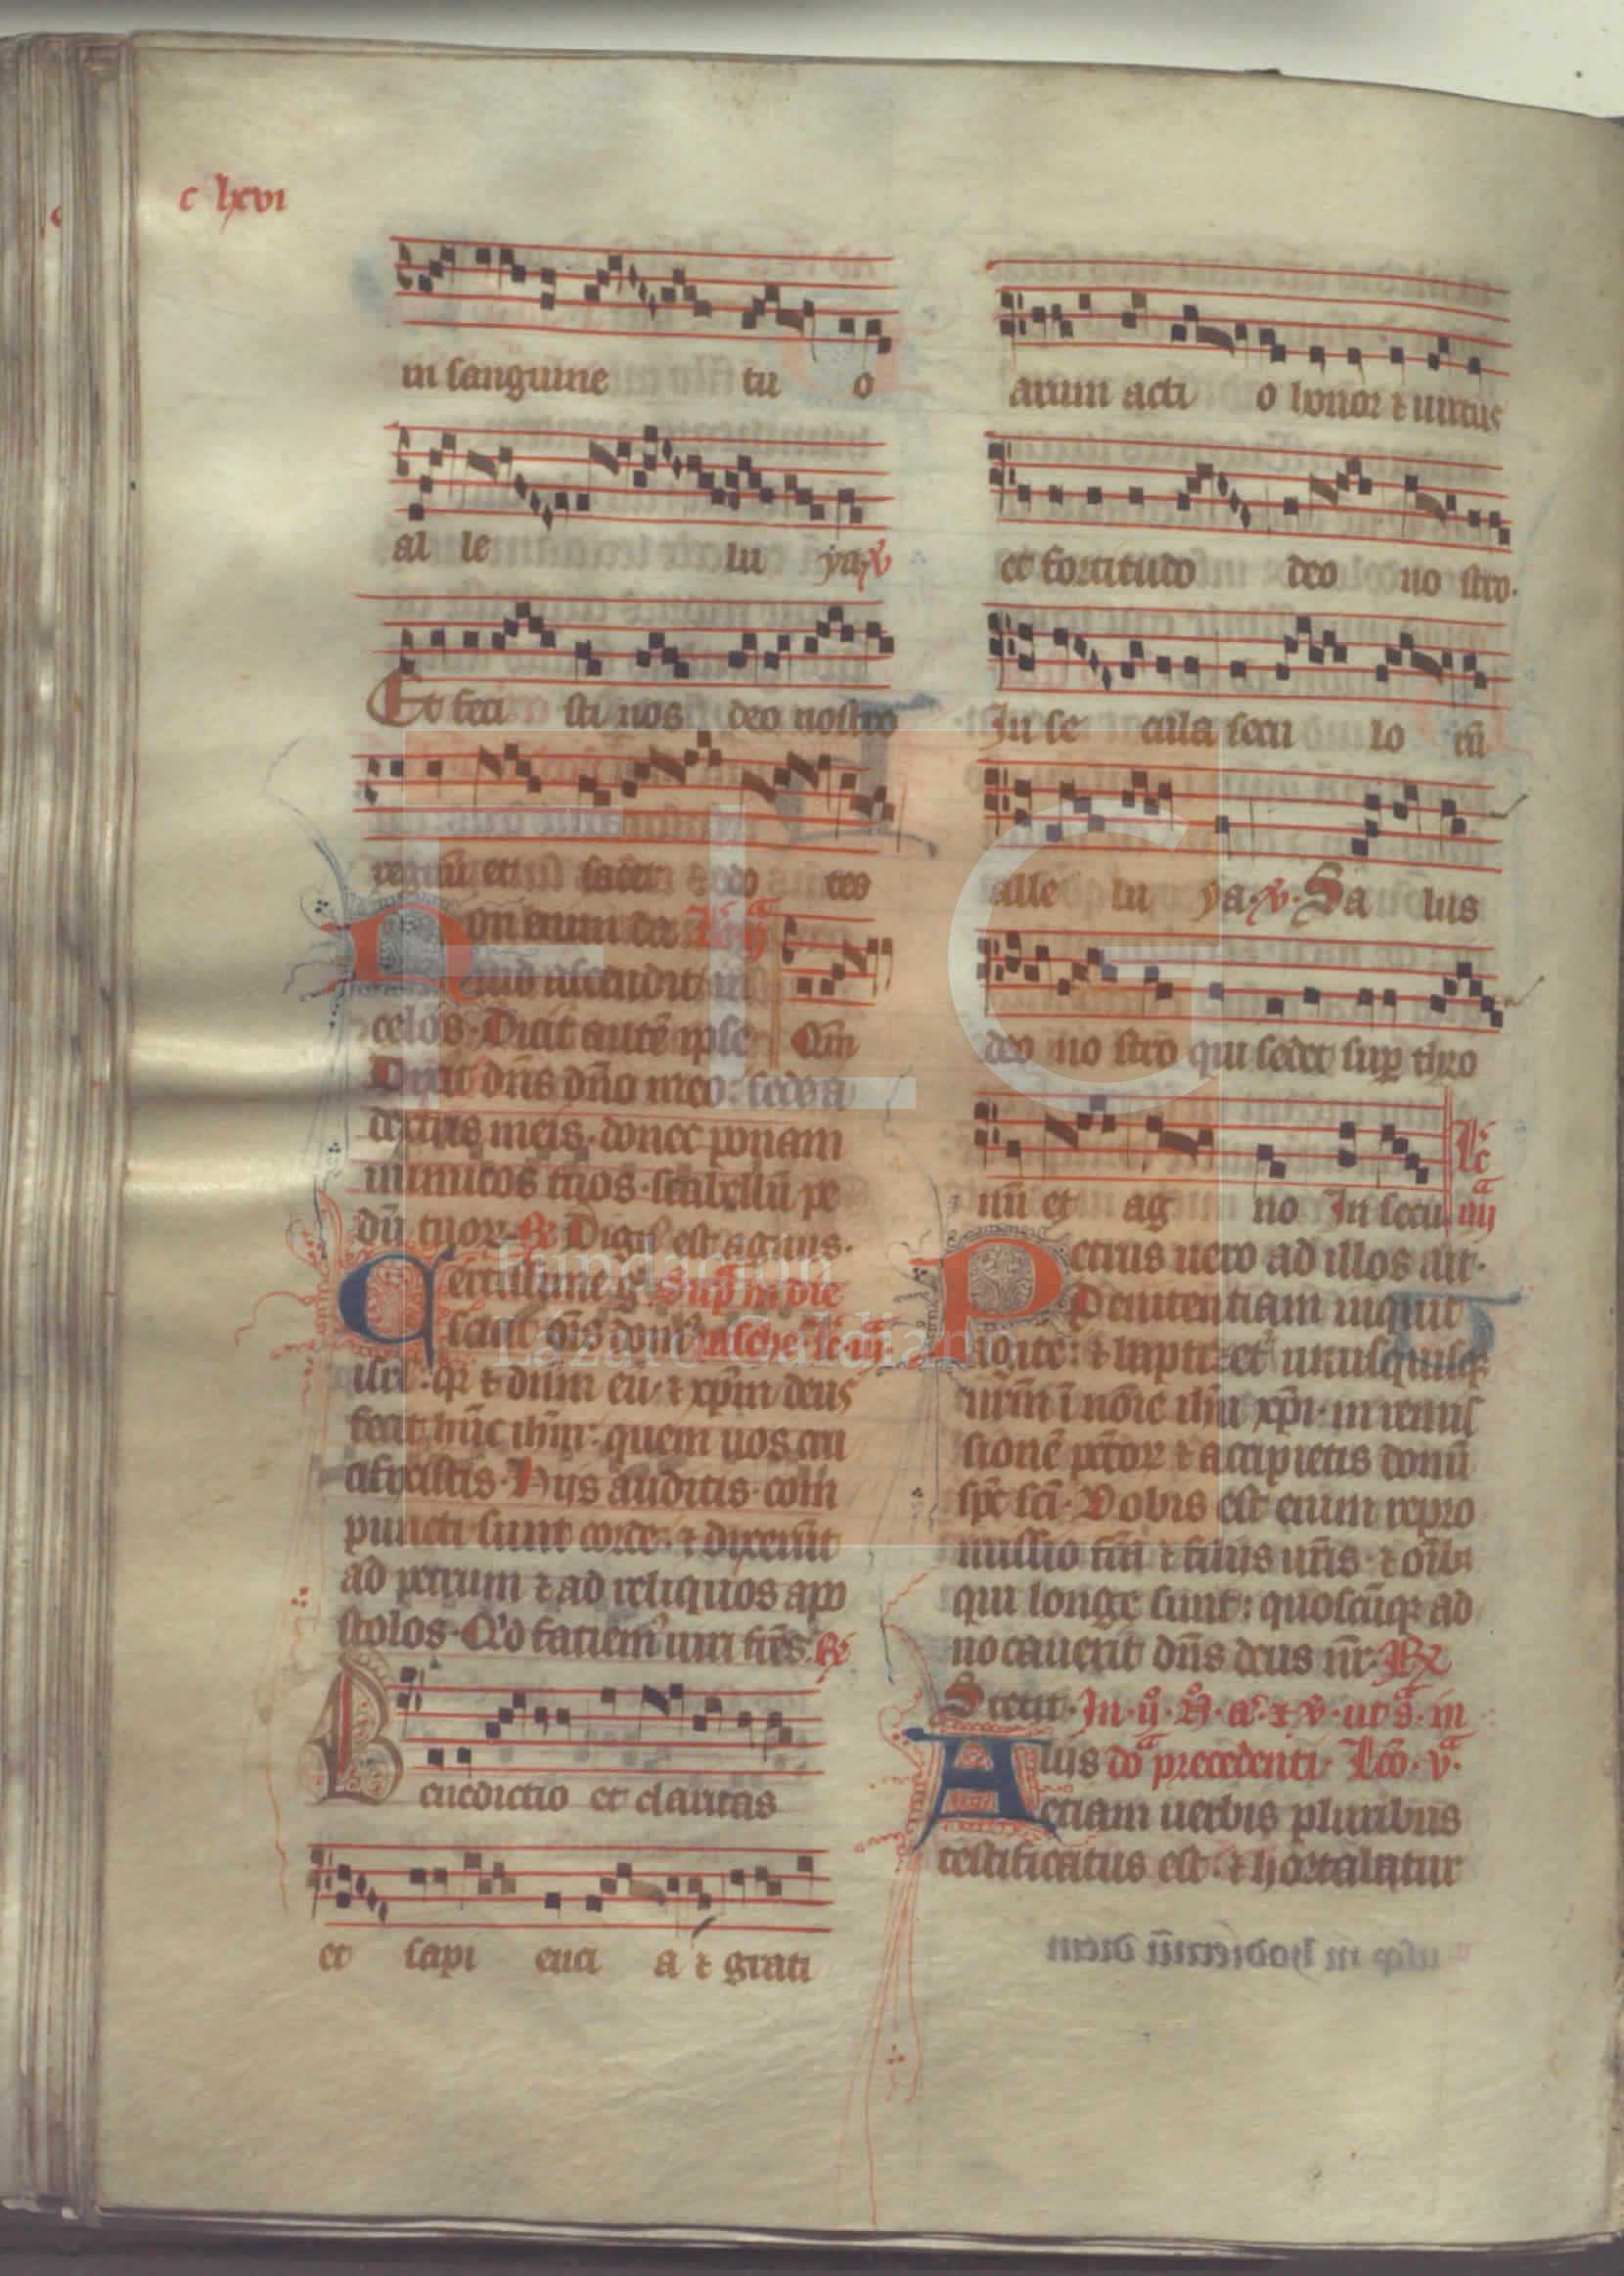 c lxvi
in sanguine tu o
al le lu ya. ꝟ
Et feci sti nos deo nostro
regnū et sacer do tes
Non enim da Lc̄ ij
uid ascendit in
celos. Dicit autē ipse Qm̄
Dixit dn̄s dn̄o meo: sede a
dextris meis. donec ponam
inimicos tuos. scabellū pe
dū tuor. ℞ Dign' est agnus.
Certissime g° Sup̄ in die
sciat ōis dom' pasche. lc̄. iij.
isrl: qꝛ ⁊ dn̄m eū ⁊ xp̄m deus
fecit hūc ih̄m: quem uos cru
cifixistis. Hiis auditis. com
puncti sunt corde. ⁊ dixerūt
ad petrum ⁊ ad reliquos apo
stolos. Q'd faciem' uiri fr̄es. ℞
Benedictio et claritas
et sapi enci a ⁊ grati
arum acti o honor ⁊ uirtus
et fortitudo deo no stro.
In se cula secu lo rū
alle lu ya. ꝟ. Sa lus
deo no stro qui sedet sup̱ thro
nū et ag no In secu. Lc̄ iiij
Petrus uero ad illos ait.
Penitentiam inquit
agite: ⁊ baptizet' unusquisqꝫ
ur̄m ī nōie ih̄u xp̄i. in remis
sionē pc̄cor ⁊ accipietis donū
sp̄c sc̄i. Vobis est enim repro
missio ⁊ filiis ur̄is. ⁊ oīb;
qui longe sunt: quoscūqꝫ ad
uocauerit dn̄s deus nr̄. ℞
Stetit. In. ij. N°. a. ⁊ ꝟ. ut s. in
Aliis do precedenti. Lco. v.
etiam uerbis pluribus
testificatus est. ⁊ hortabatur
usqꝫ in hodiernū diem
FLG
Fundación
Lázaro Galdiano